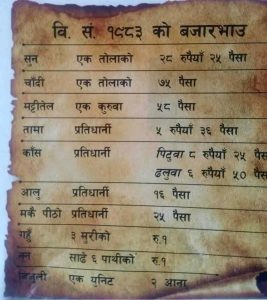 वि. सं. १९८३ को बजारभाउ
सुन एक तोलाको २८ रुपैयाँ २५ पैसा
चाँदी एक तोलाको ७५ पैसा
मट्टीतेल एक कुरुवा ५८ पैसा
तामा प्रतिधार्नी ५ रुपैयाँ ३६ पैसा
काँस प्रतिधार्नी पिटुवा ८ रुपैयाँ २५ पैसा
ढलुवा ६ रुपैयाँ ५० पैसा
आलु प्रतिधार्नी १६ पैसा
मकै पीठो प्रतिधार्नी २५ पैसा
गहुँ ३ मुरीको रु.१
नुन साढे ६ पाथीको रु.१
बिजुली एक युनिट २ आना